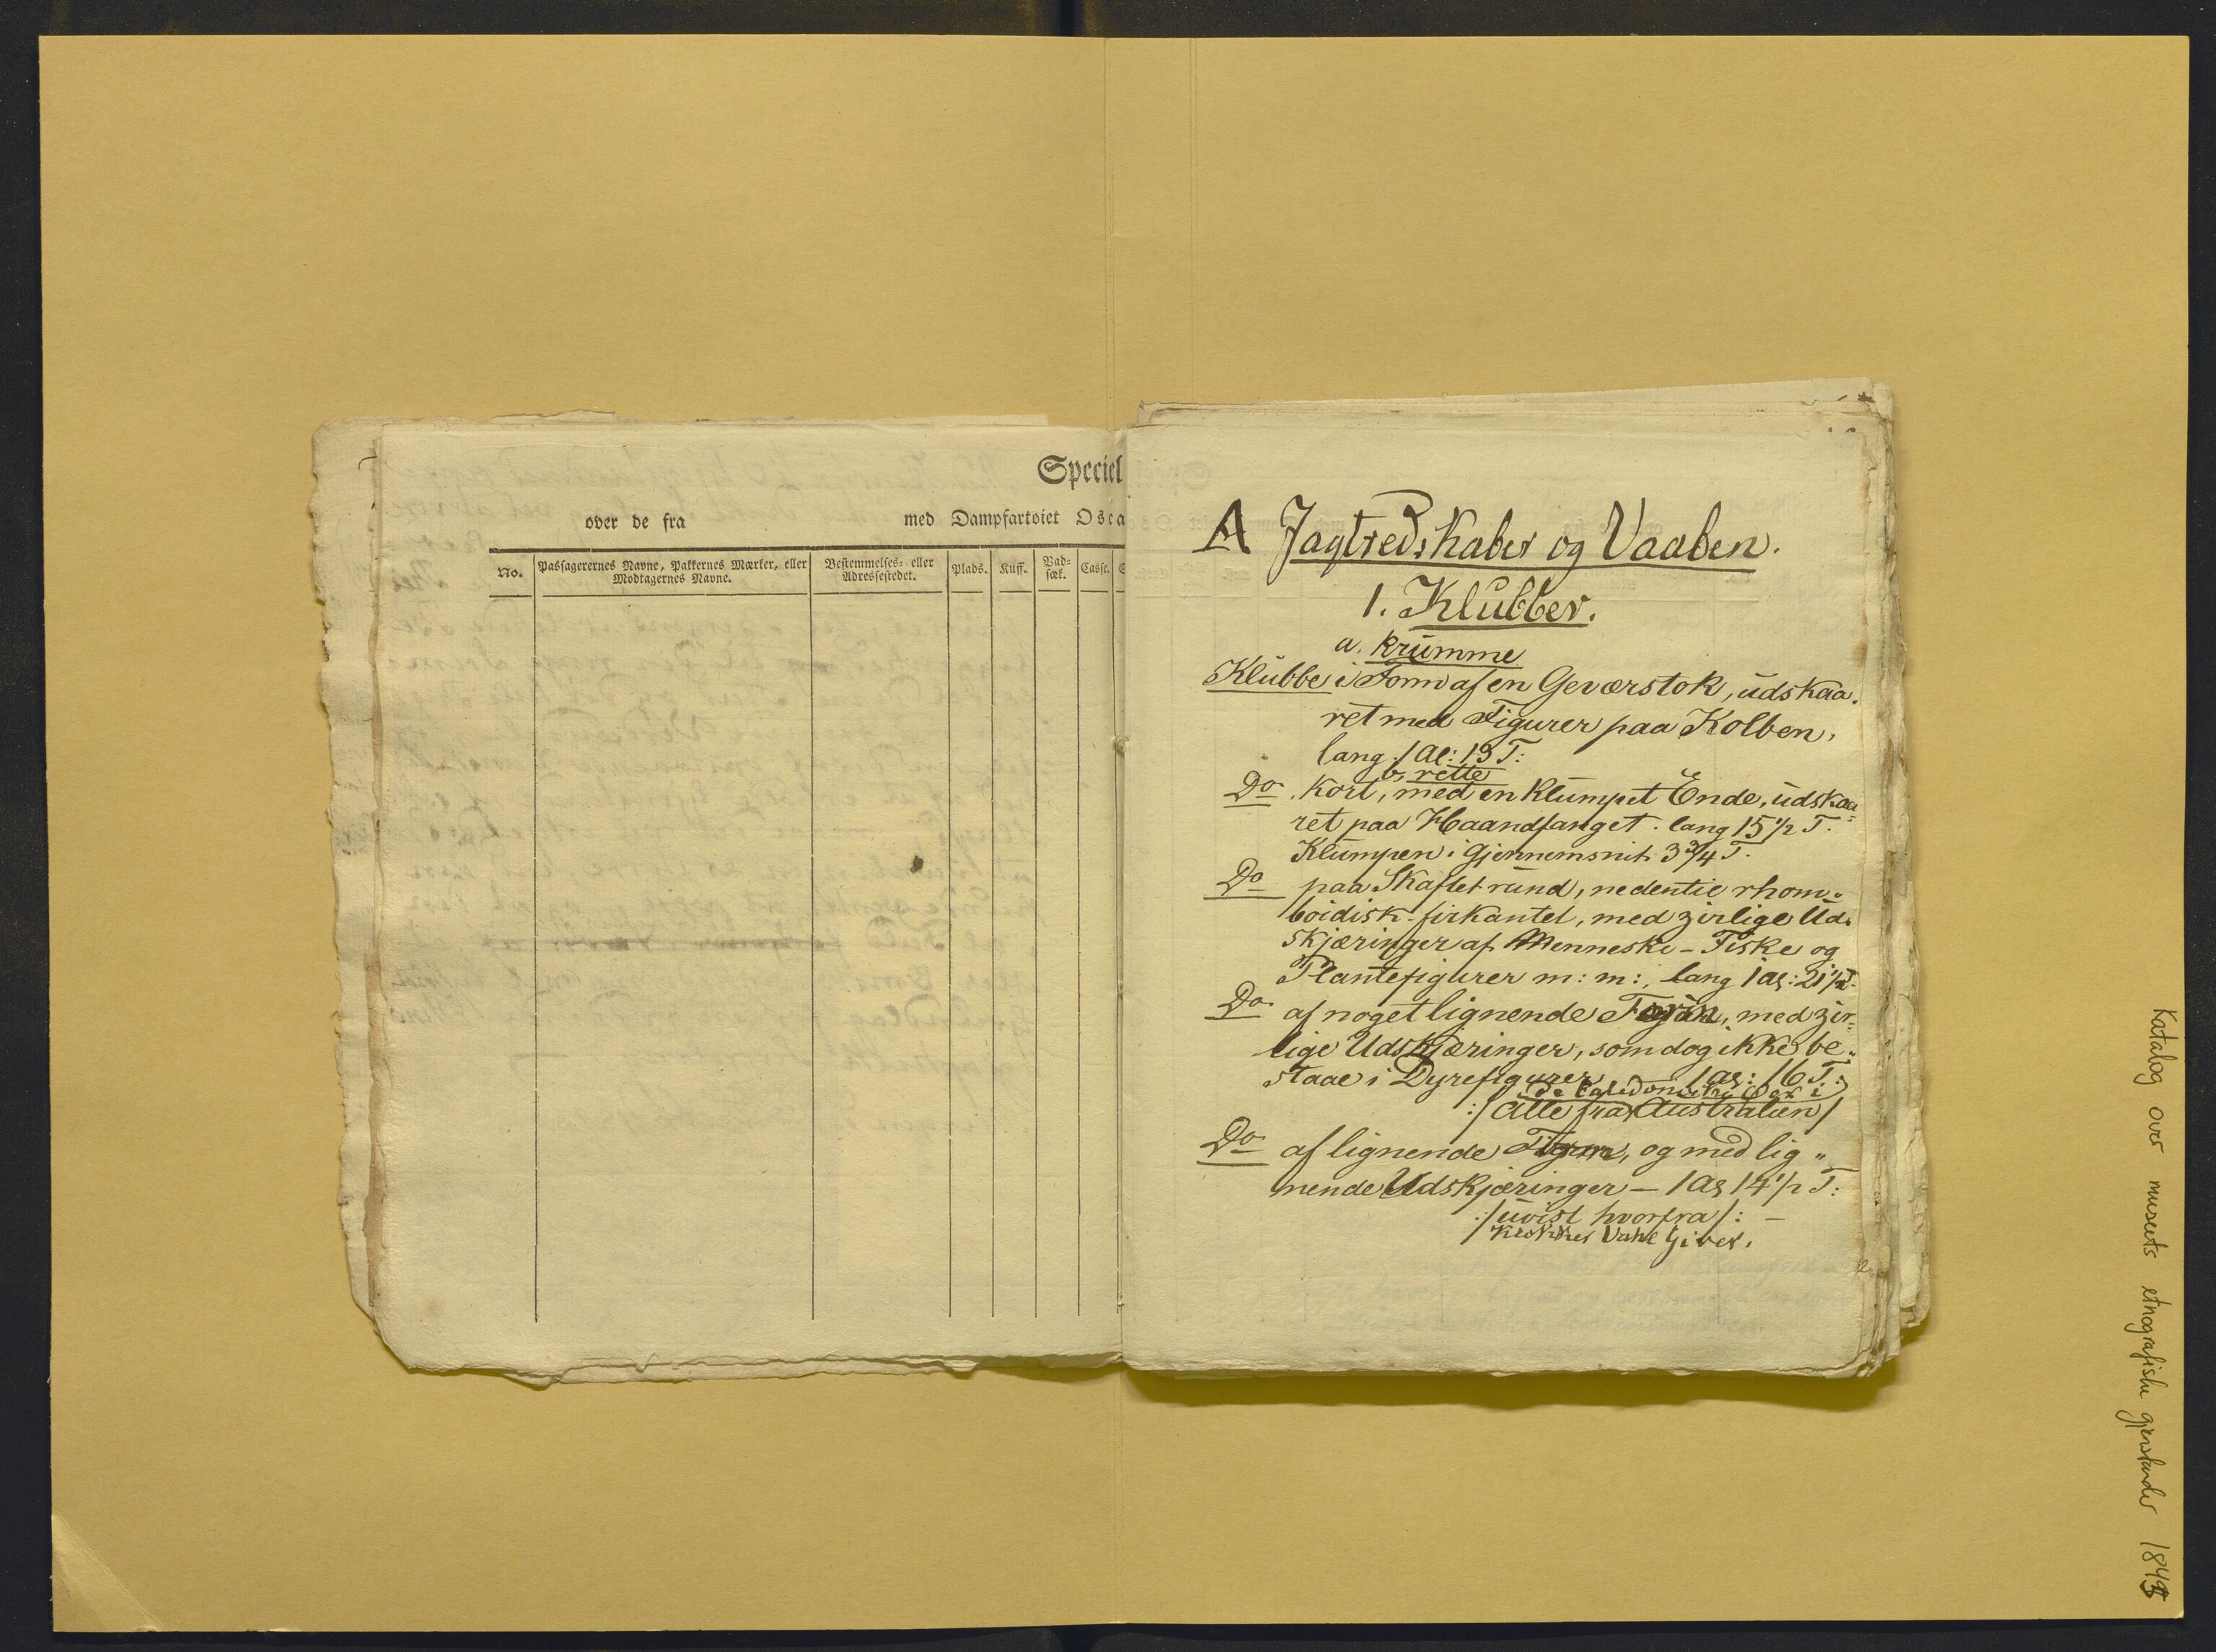 Speciel
over de fra med Dampfartoiet Osca
No.
Passagerernes Navne, Pakkernes Mærker, eller
Modtagernes Navne.
Bestemmelses- eller
Adressestedet.
Plads.
Kuff.
Vad-
sæk.
Casse.
A Jagtredskaber og Vaaben.
1. Klubber.
a. krumme
Klubbe i Form af en Geværstok, udskaa-
ret med Figurer paa Kolben,
lang 1 Al: 13 T:
b, rette
Do. Kort, med en klumpet Ende, udskaa-
ret paa Haandfanget. lang 15 1/2 T.
Klumpen i Gjennemsnit 3 3/4 T.
Do paa Skaftet rund, nedentil rhom-
boidisk-firkantet, med zirlige Ud-
skjæringer af Menneske- Fiske og
Plantefigurer m: m:, lang 1 al: 21 1/2 T.
Do af noget lignende Form, med zir-
lige Udskjæringer, som dog ikke be-
staae i Dyrefigurer 1 al: 16 T:
:/ Alle fra Australien /
Do af lignende Figur, og med lig-
nende Udskjæringer — 1 al 14 1/2 T:
:/ uvist hvorfra /: —
Vahl Giver.
2
Katalog over museets etnografiske gjenstander